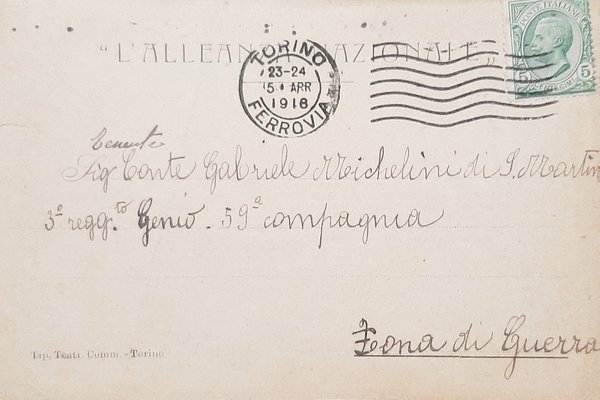 "L'ALLEANZA NAZIONALE"
TORINO
23-24
5 APR
1918
FERROVIA
POSTE ITALIANE
5 5
CENTESIMI
Tenente
Sig Conte Gabriele Michelini di S. Martin
3º regg.to Genio. 59ª compagnia
Zona di Guerra
Tip. Teatr. Comm. - Torino